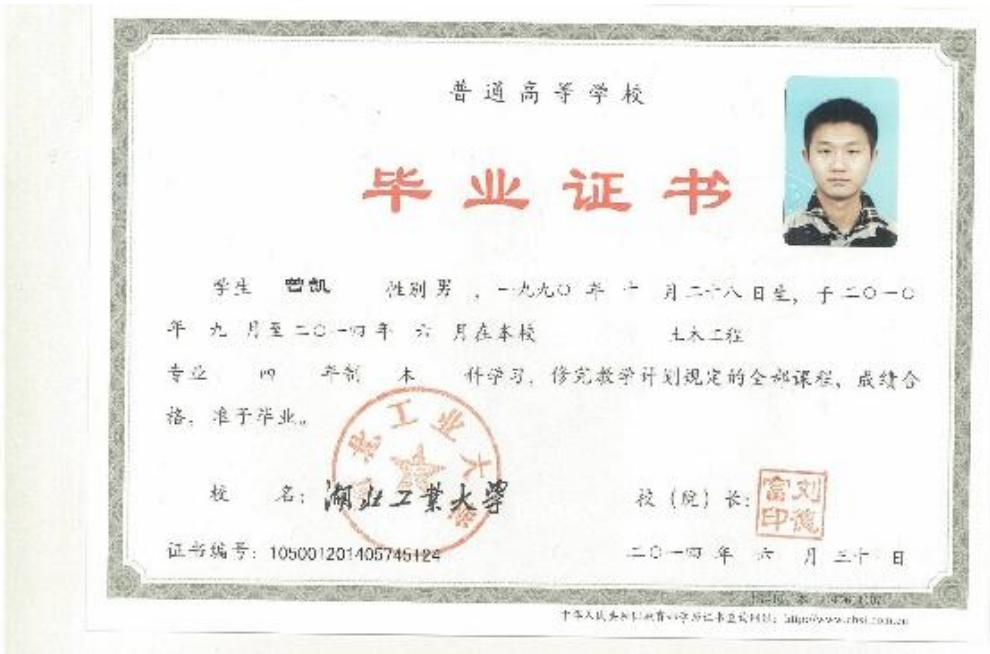 普通高等学校
毕业证书
学生 曾凯 性别 男 ，一九九〇 年 十 月 二十八 日生，于二〇一〇
年 九 月至二〇一四年 六 月在本校 土木工程
专业 四 年制 本 科学习，修完教学计划规定的全部课程，成绩合
格，准予毕业。
校 名：湖北工業大學
校（院）长：
刘德富印
证书编号：105001201405745124
二〇一四年 六 月 三十 日
http://www.chsi.com.cn